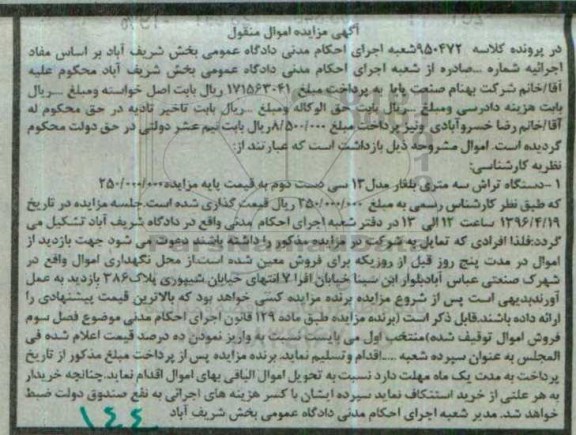 آگهی مزایده اموال منقول
در پرونده کلاسه ۹۵۰۴۷۲شعبه اجرای احکام مدنی دادگاه عمومی بخش شریف آباد بر اساس مفاد
اجرائیه شماره ...صادره از شعبه اجرای احکام مدنی دادگاه عمومی بخش شریف آباد محکوم علیه
آقا/خانم شرکت بهنام صنعت پایا به پرداخت مبلغ ۱۷۱۵۶۳۰۴۱ ریال بابت اصل خواسته ومبلغ ...ریال
بابت هزینه دادرسی ومبلغ ...ریال بابت حق الوکاله ومبلغ ...ریال بابت تاخیر تادیه در حق محکوم له
آقا/خانم رضا خسروآبادی ونیز پرداخت مبلغ ۸/۵۰۰/۰۰۰ریال بابت نیم عشر دولتی در حق دولت محکوم
گردیده است. اموال مشروحه ذیل بازداشت است که عبارتند از:
نظریه کارشناسی:
۱ –دستگاه تراش سه متری بلغار مدل۱۳ سی دست دوم به قیمت پایه مزایده۲۵۰/۰۰۰/۰۰۰
که طبق نظر کارشناس رسمی به مبلغ ۲۵۰/۰۰۰/۰۰۰ ریال قیمت گذاری شده است.جلسه مزایده در تاریخ
۱۳۹۶/۴/۱۹ ساعت ۱۲ الی ۱۳ در دفتر شعبه اجرای احکام مدنی واقع در دادگاه شریف آباد تشکیل می
گردد:فلذا افرادی که تمایل به شرکت در مزایده مذکور را داشته باشند دعوت می شود جهت بازدید از
اموال در مدت پنج روز قبل از روزیکه برای فروش معین شده است.از محل نگهداری اموال واقع در
شهرک صنعتی عباس آبادبلوار ابن سینا خیابان افرا ۷ انتهای خیابان شیپوری پلاک۳۸۶ بازدید به عمل
آورندبدیهی است پس از شروع مزایده برنده مزایده کسی خواهد بود که بالاترین قیمت پیشنهادی را
ارائه داده باشند.قابل ذکر است (برنده مزایده طبق ماده ۱۲۹ قانون اجرای احکام مدنی موضوع فصل سوم
فروش اموال توقیف شده)منتخص اول می بایست نسبت به واریز نمودن ده درصد قیمت اعلام شده فی
المجلس به عنوان سپرده شعبه ....اقدام وتسلیم نماید. برنده مزایده پس از پرداخت مبلغ مذکور از تاریخ
پرداخت به مدت یک ماه مهلت دارد نسبت به تحویل اموال الباقی بهای اموال اقدام نماید.چنانچه خریدار
به هر علتی از خرید استنکاف نماید سپرده ایشان با کسر هزینه های اجرائی به نفع صندوق دولت ضبط
خواهد شد. مدیر شعبه اجرای احکام مدنی دادگاه عمومی بخش شریف آباد
۱۴۴